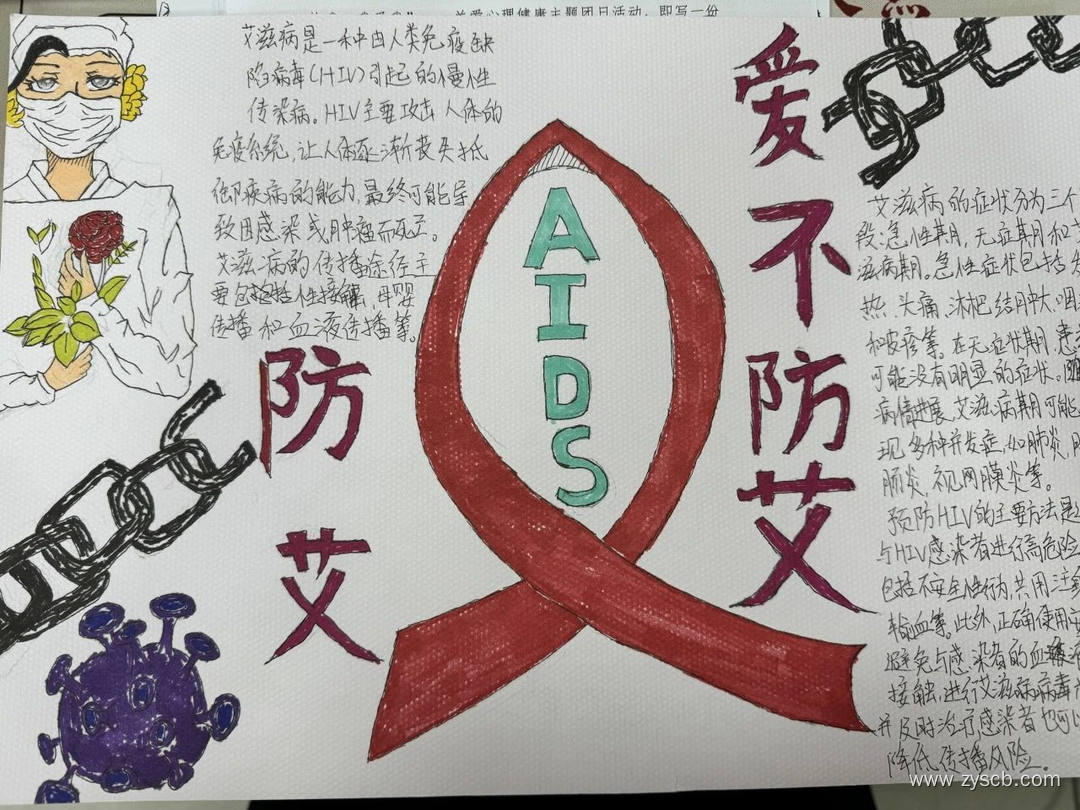 关爱心理健康主题团日活动，即写一份
艾滋病是一种由人类免疫缺
陷病毒(HIV)引起的慢性
传染病。HIV主要攻击人体的
免疫系统，让人体逐渐丧失抵
御疾病的能力，最终可能导
致因感染或肿瘤而死亡。
艾滋病的传播途径主
要包括性接触，母婴
传播和血液传播等。
防
艾
AIDS
爱
不
防
艾
艾滋病的症状分为三个
段：急性期，无症期和
滋病期。急性症状包括
热、头痛、淋杷结肿大、咽
和皮疹等。在无症状期，患
可能没有明显的症状。
病情进展，艾滋病期可能
现多种并发症，如肺炎，
肠炎，视网膜炎等。
预防HIV的主要方法是
与HIV感染者进行高危险
包括不安全性行为，共用注
输血等。此外，正确使用
避免与感染者的血液
接触，进行艾滋病病毒
并及时治疗感染者也可
降低传播风险。
www.zyscb.com